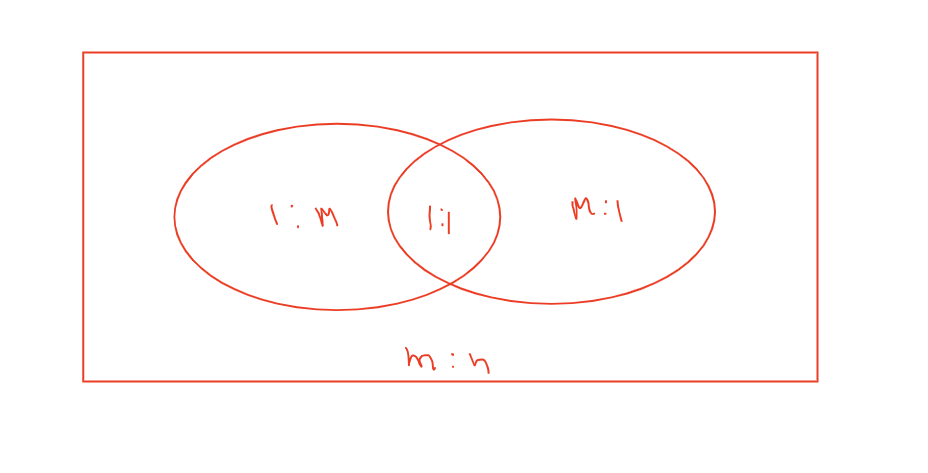 1:M
1:1
M:1
m:n